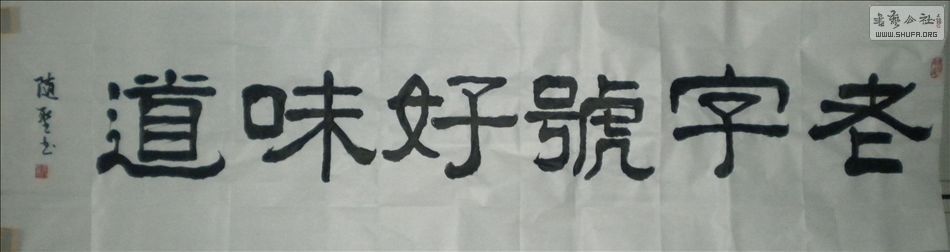 老字號好味道
隨聖书
书艺公社
WWW.SHUFA.ORG